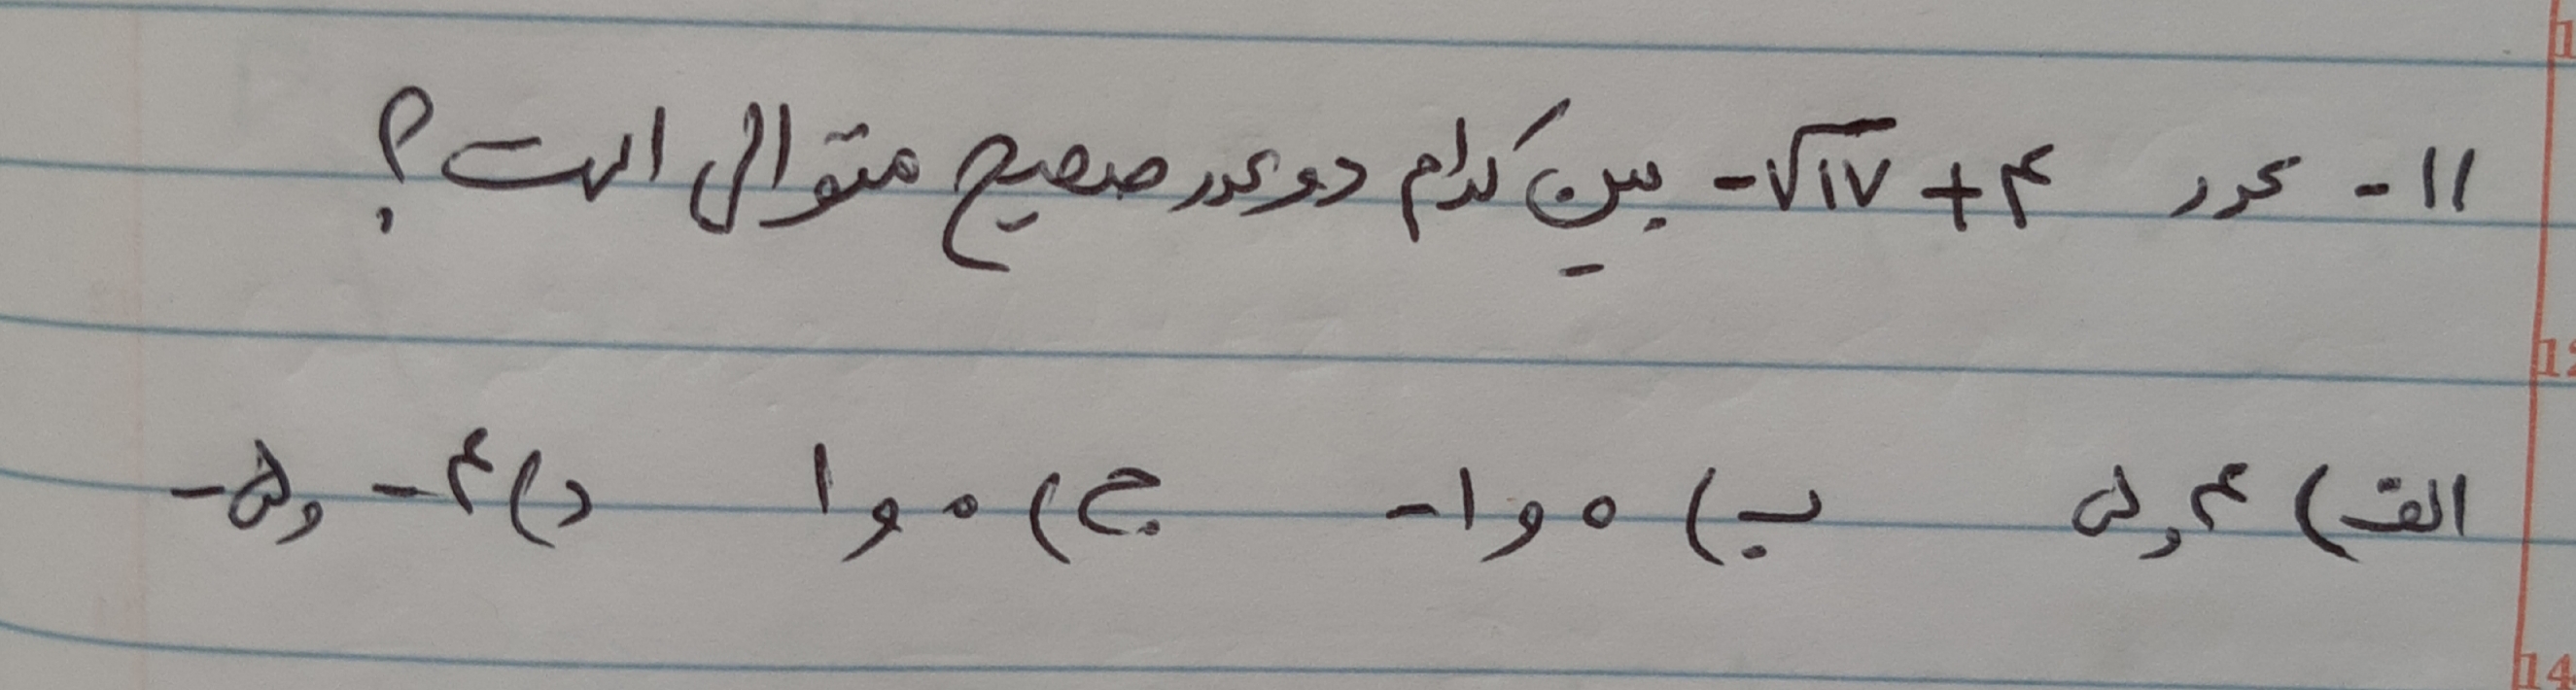 ۱۱- عدد -√۱۷ + ۴ بین کدام دو عدد صحیح متوالی است؟
الف) ۴ و ۵ ب) ۰ و ۱- ج) ۰ و ۱ د) ۴- و ۵-
12
14